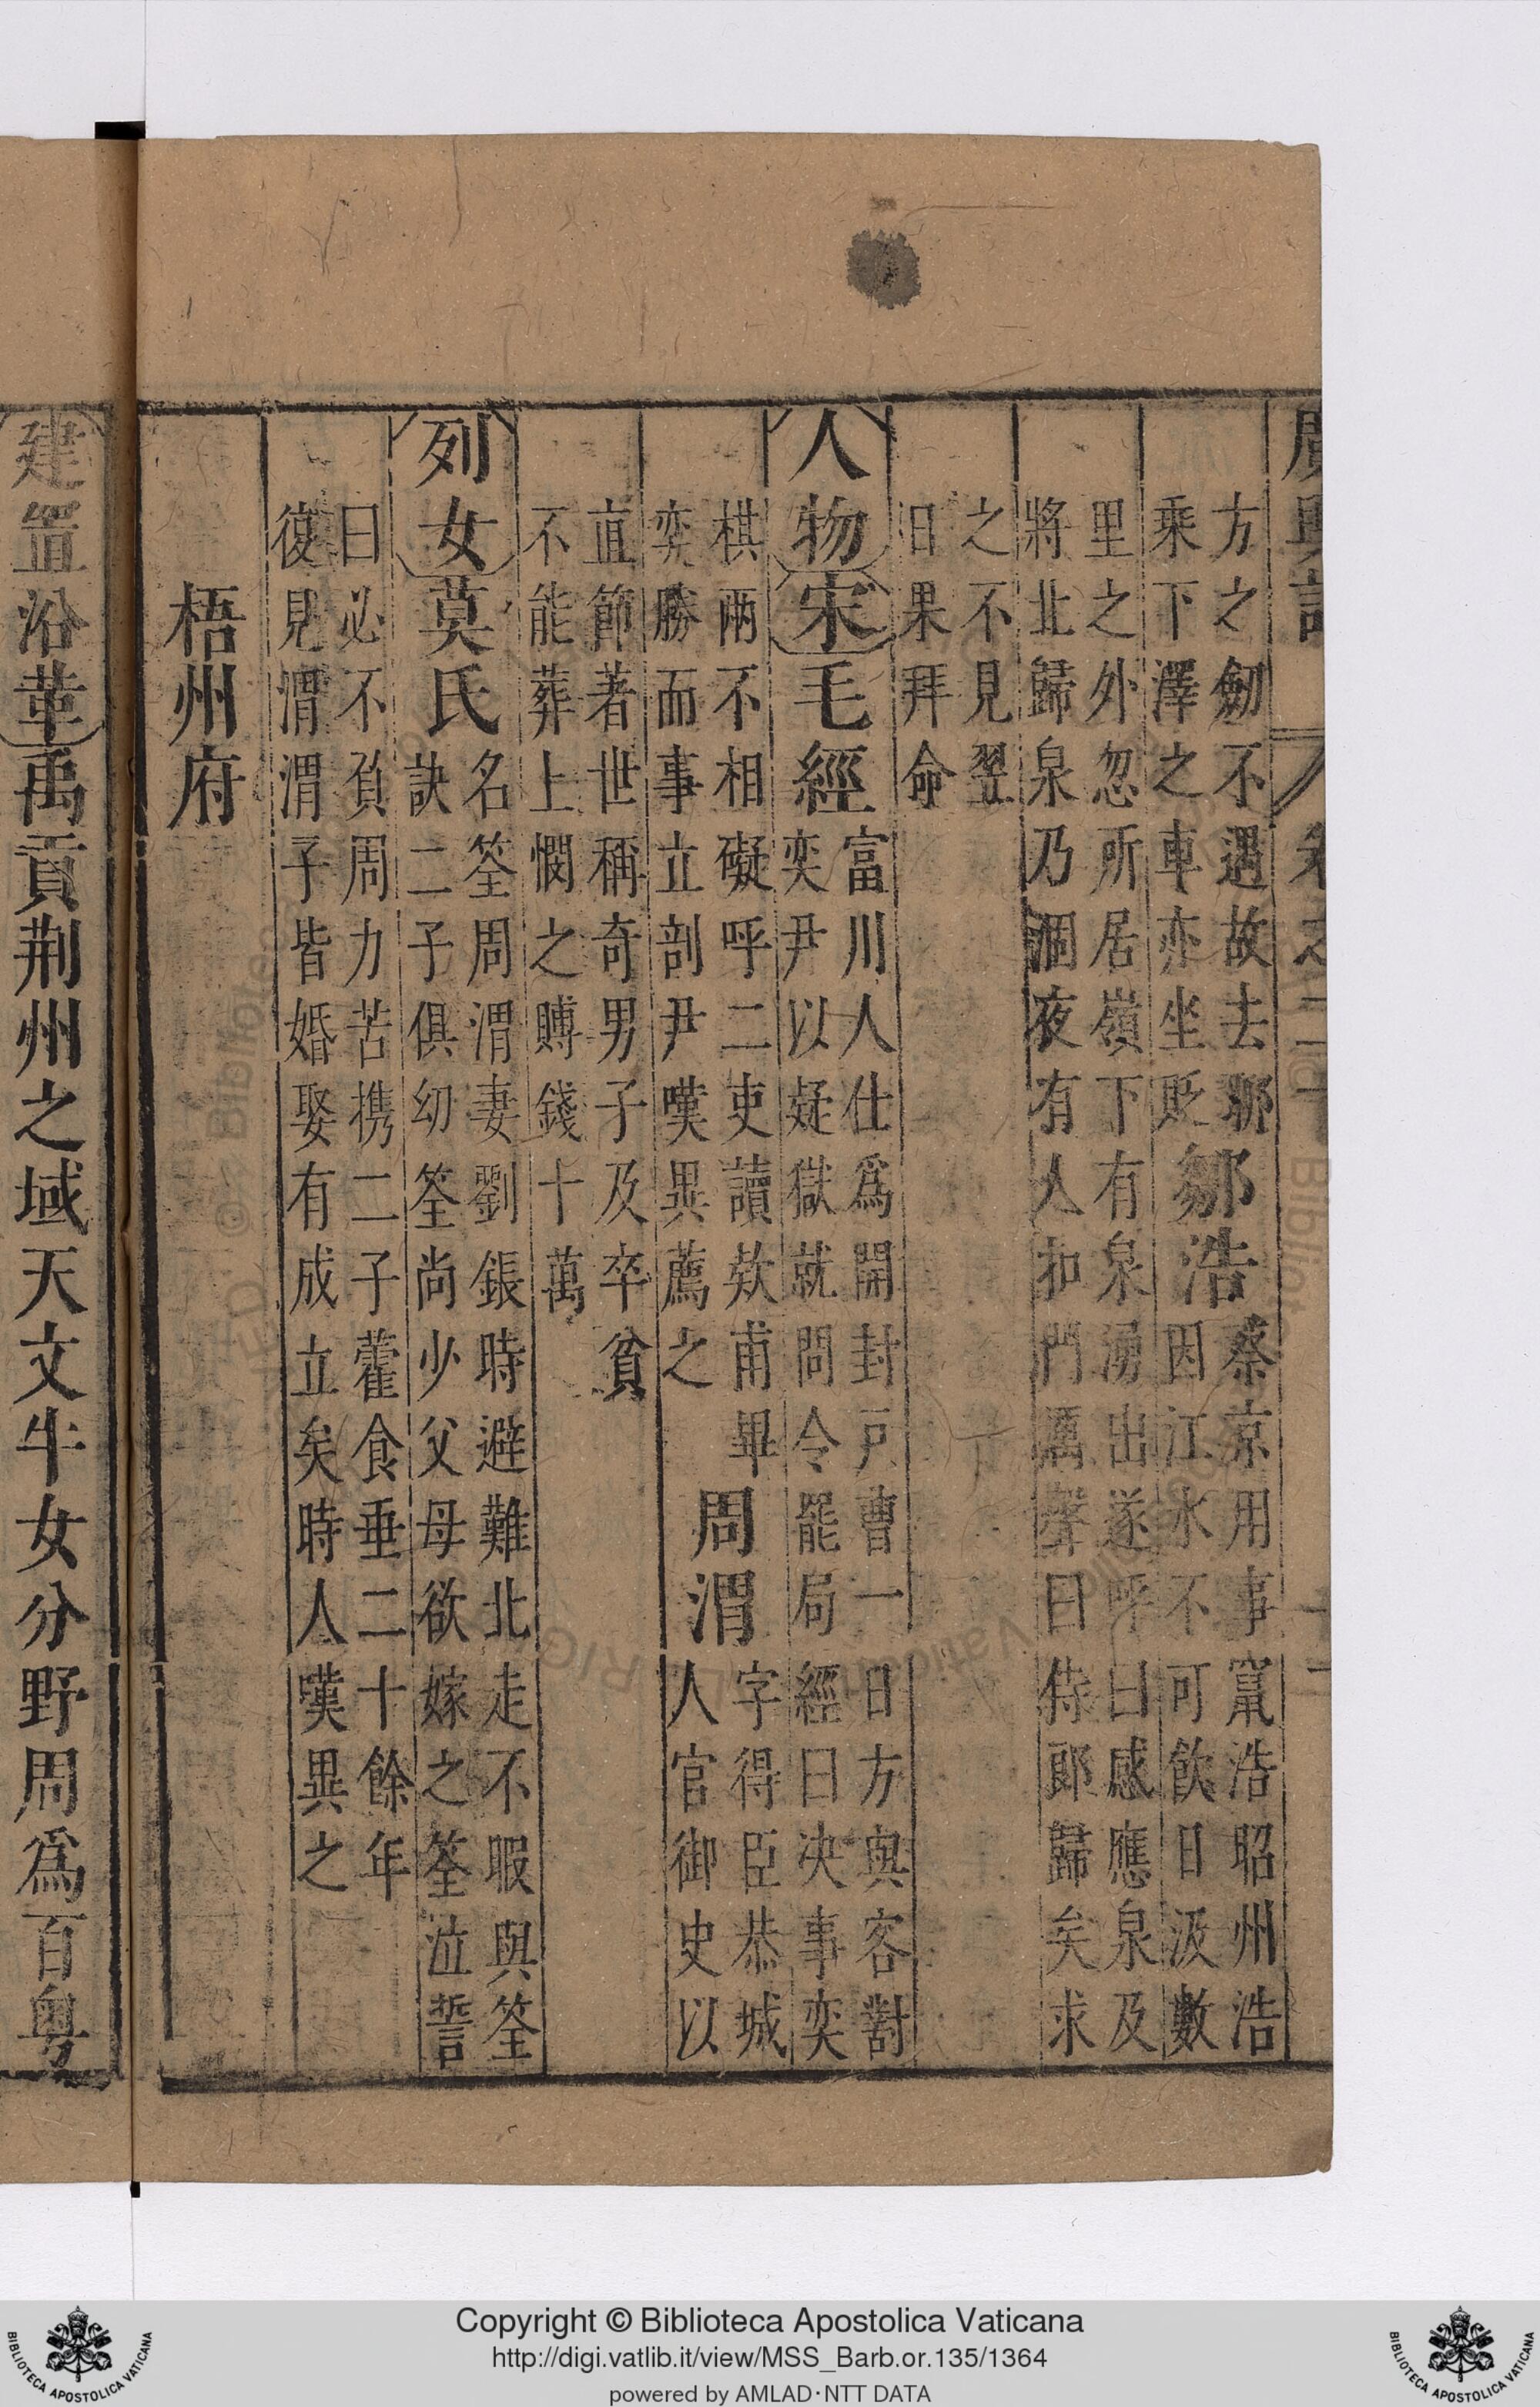 廣輿記
卷之二十
方之劒不遇故去耶
乘下澤之車亦坐貶
鄒浩
蔡京用事竄浩昭州浩
因江水不可飲日汲數
里之外忽所居嶺下有泉湧出遂呼曰感應泉及
將北歸泉乃涸夜有人扣門厲聲曰侍郎歸矣求
之不見翌
日果拜命
人物宋毛經
富川人仕爲開封戸曹一日方與客對
奕尹以疑獄就問令罷局經曰决事奕
棋兩不相礙呼二吏讀欵甫畢
奕勝而事立剖尹嘆異薦之
周渭
字得臣恭城
人官御史以
直節著世稱奇男子及卒貧
不能葬上憫之賻錢十萬
列女莫氏
名筌周渭妻劉鋹時避難北走不暇與筌
訣二子俱幼筌尚少父母欲嫁之筌泣誓
曰必不負周力苦携二子藿食垂二十餘年
復見渭渭子皆婚娶有成立矣時人嘆異之
梧州府
建置沿革禹貢荆州之域天文牛女分野周爲百粤
Copyright © Biblioteca Apostolica Vaticana
http://digi.vatlib.it/view/MSS_Barb.or.135/1364
powered by AMLAD·NTT DATA
BIBLIOTECA APOSTOLICA VATICANA
BIBLIOTECA APOSTOLICA VATICANA